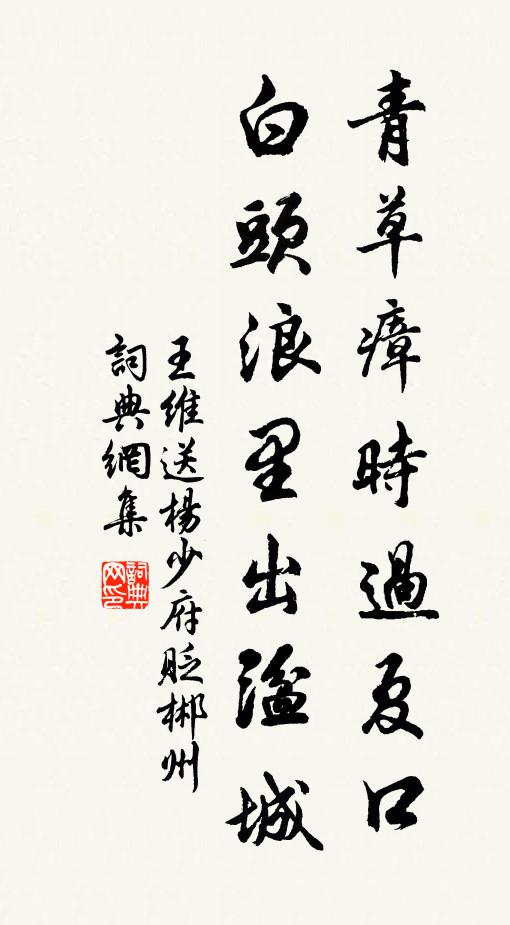 青草瘴時過夏口
白頭浪里出湓城
王維送楊少府貶郴州
詞典網集
詞典
网印